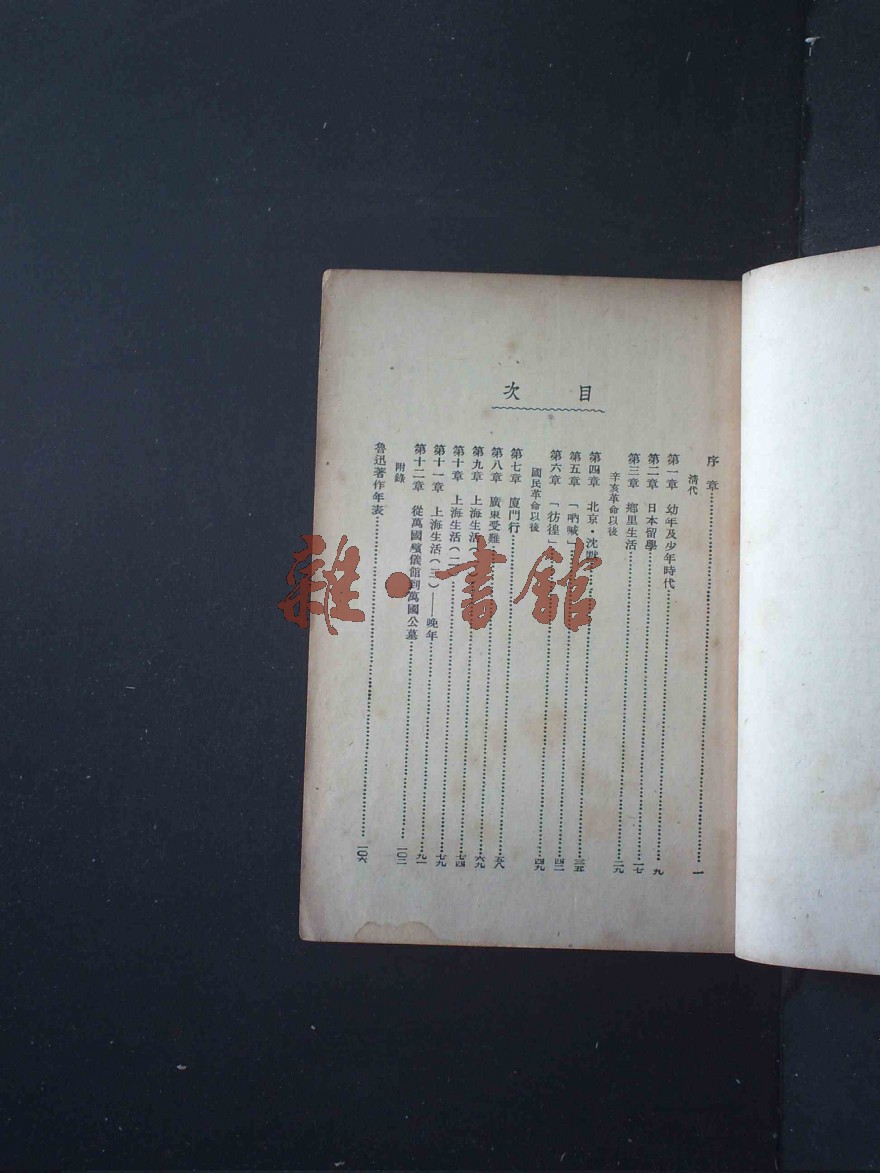 目次
序章 一
清代
第一章 幼年及少年時代 九
第二章 日本留學 一七
第三章 鄉里生活 二九
辛亥革命以後
第四章 北京・沈默 三五
第五章 「吶喊」 四二
第六章 「彷徨」 四九
國民革命以後
第七章 廈門行 五八
第八章 廣東受難 六九
第九章 上海生活( 七四
第十章 上海生活(二) 七九
第十一章 上海生活(三)——晚年 九一
第十二章 從萬國殯儀館到萬國公墓 一〇二
附錄
魯迅著作年表 一〇六
雜・書館